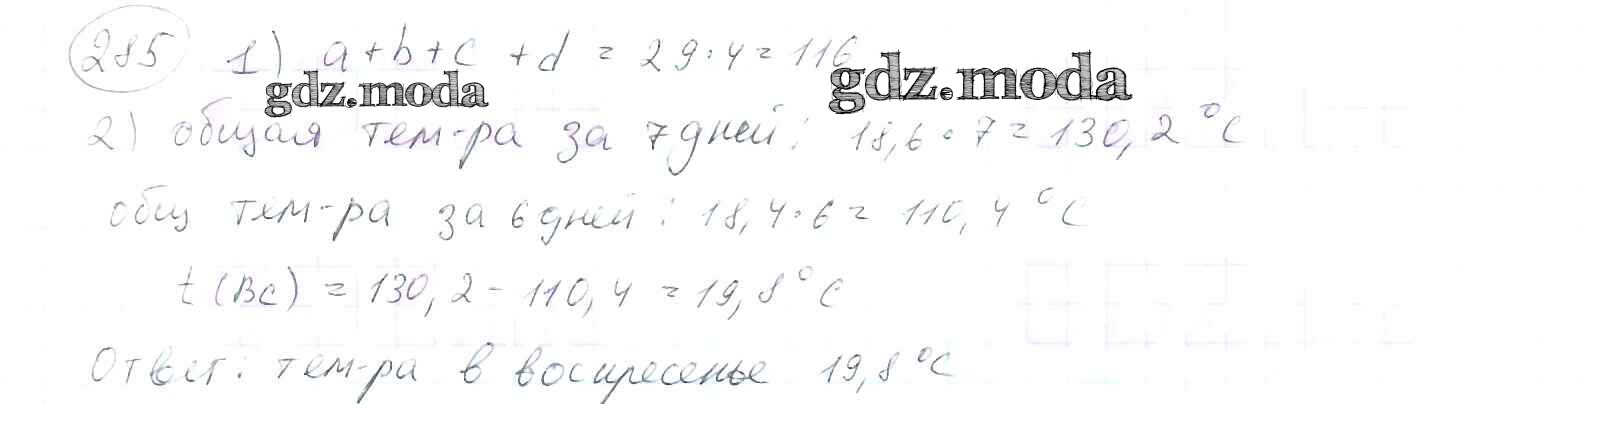 285 1) a+b+c +d = 29·4=116
gdz.moda gdz.moda
2) общая тем-ра за 7 дней: 18,6·7=130,2 °C
общ тем-ра за 6 дней: 18,4·6=110,4 °C
t (Вс) = 130,2 - 110,4 = 19,8 °C
Ответ: тем-ра в воскресенье 19,8 °C